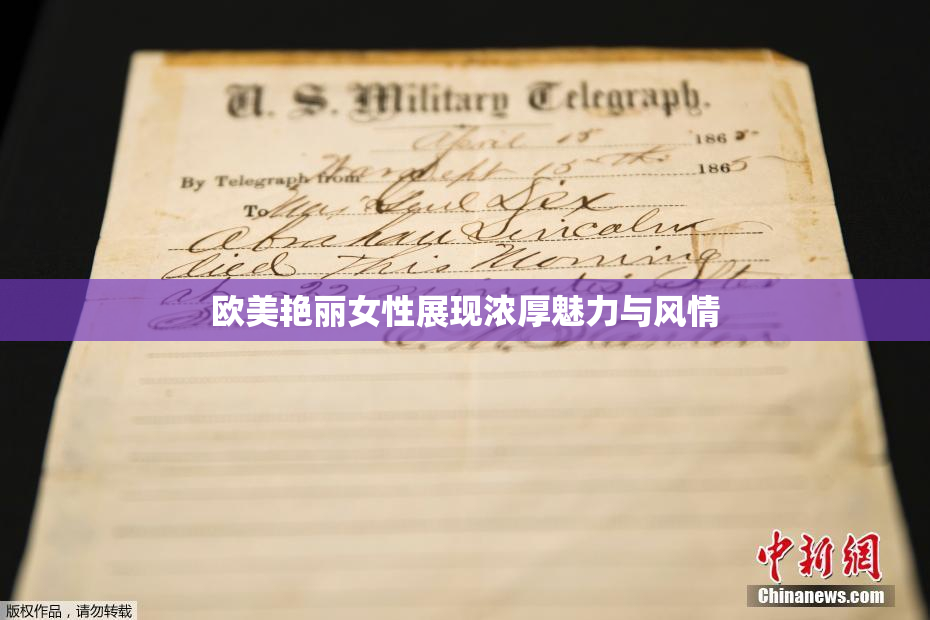 U. S. Military Telegraph.
April 15 1865
By Telegraph from War Dept 15th 1865
To Maj Genl Dix
Abraham Lincoln
died This Morning
at 22 minutes after
欧美艳丽女性展现浓厚魅力与风情
E. M. Stanton
中新網
Chinanews.com
版权作品，请勿转载